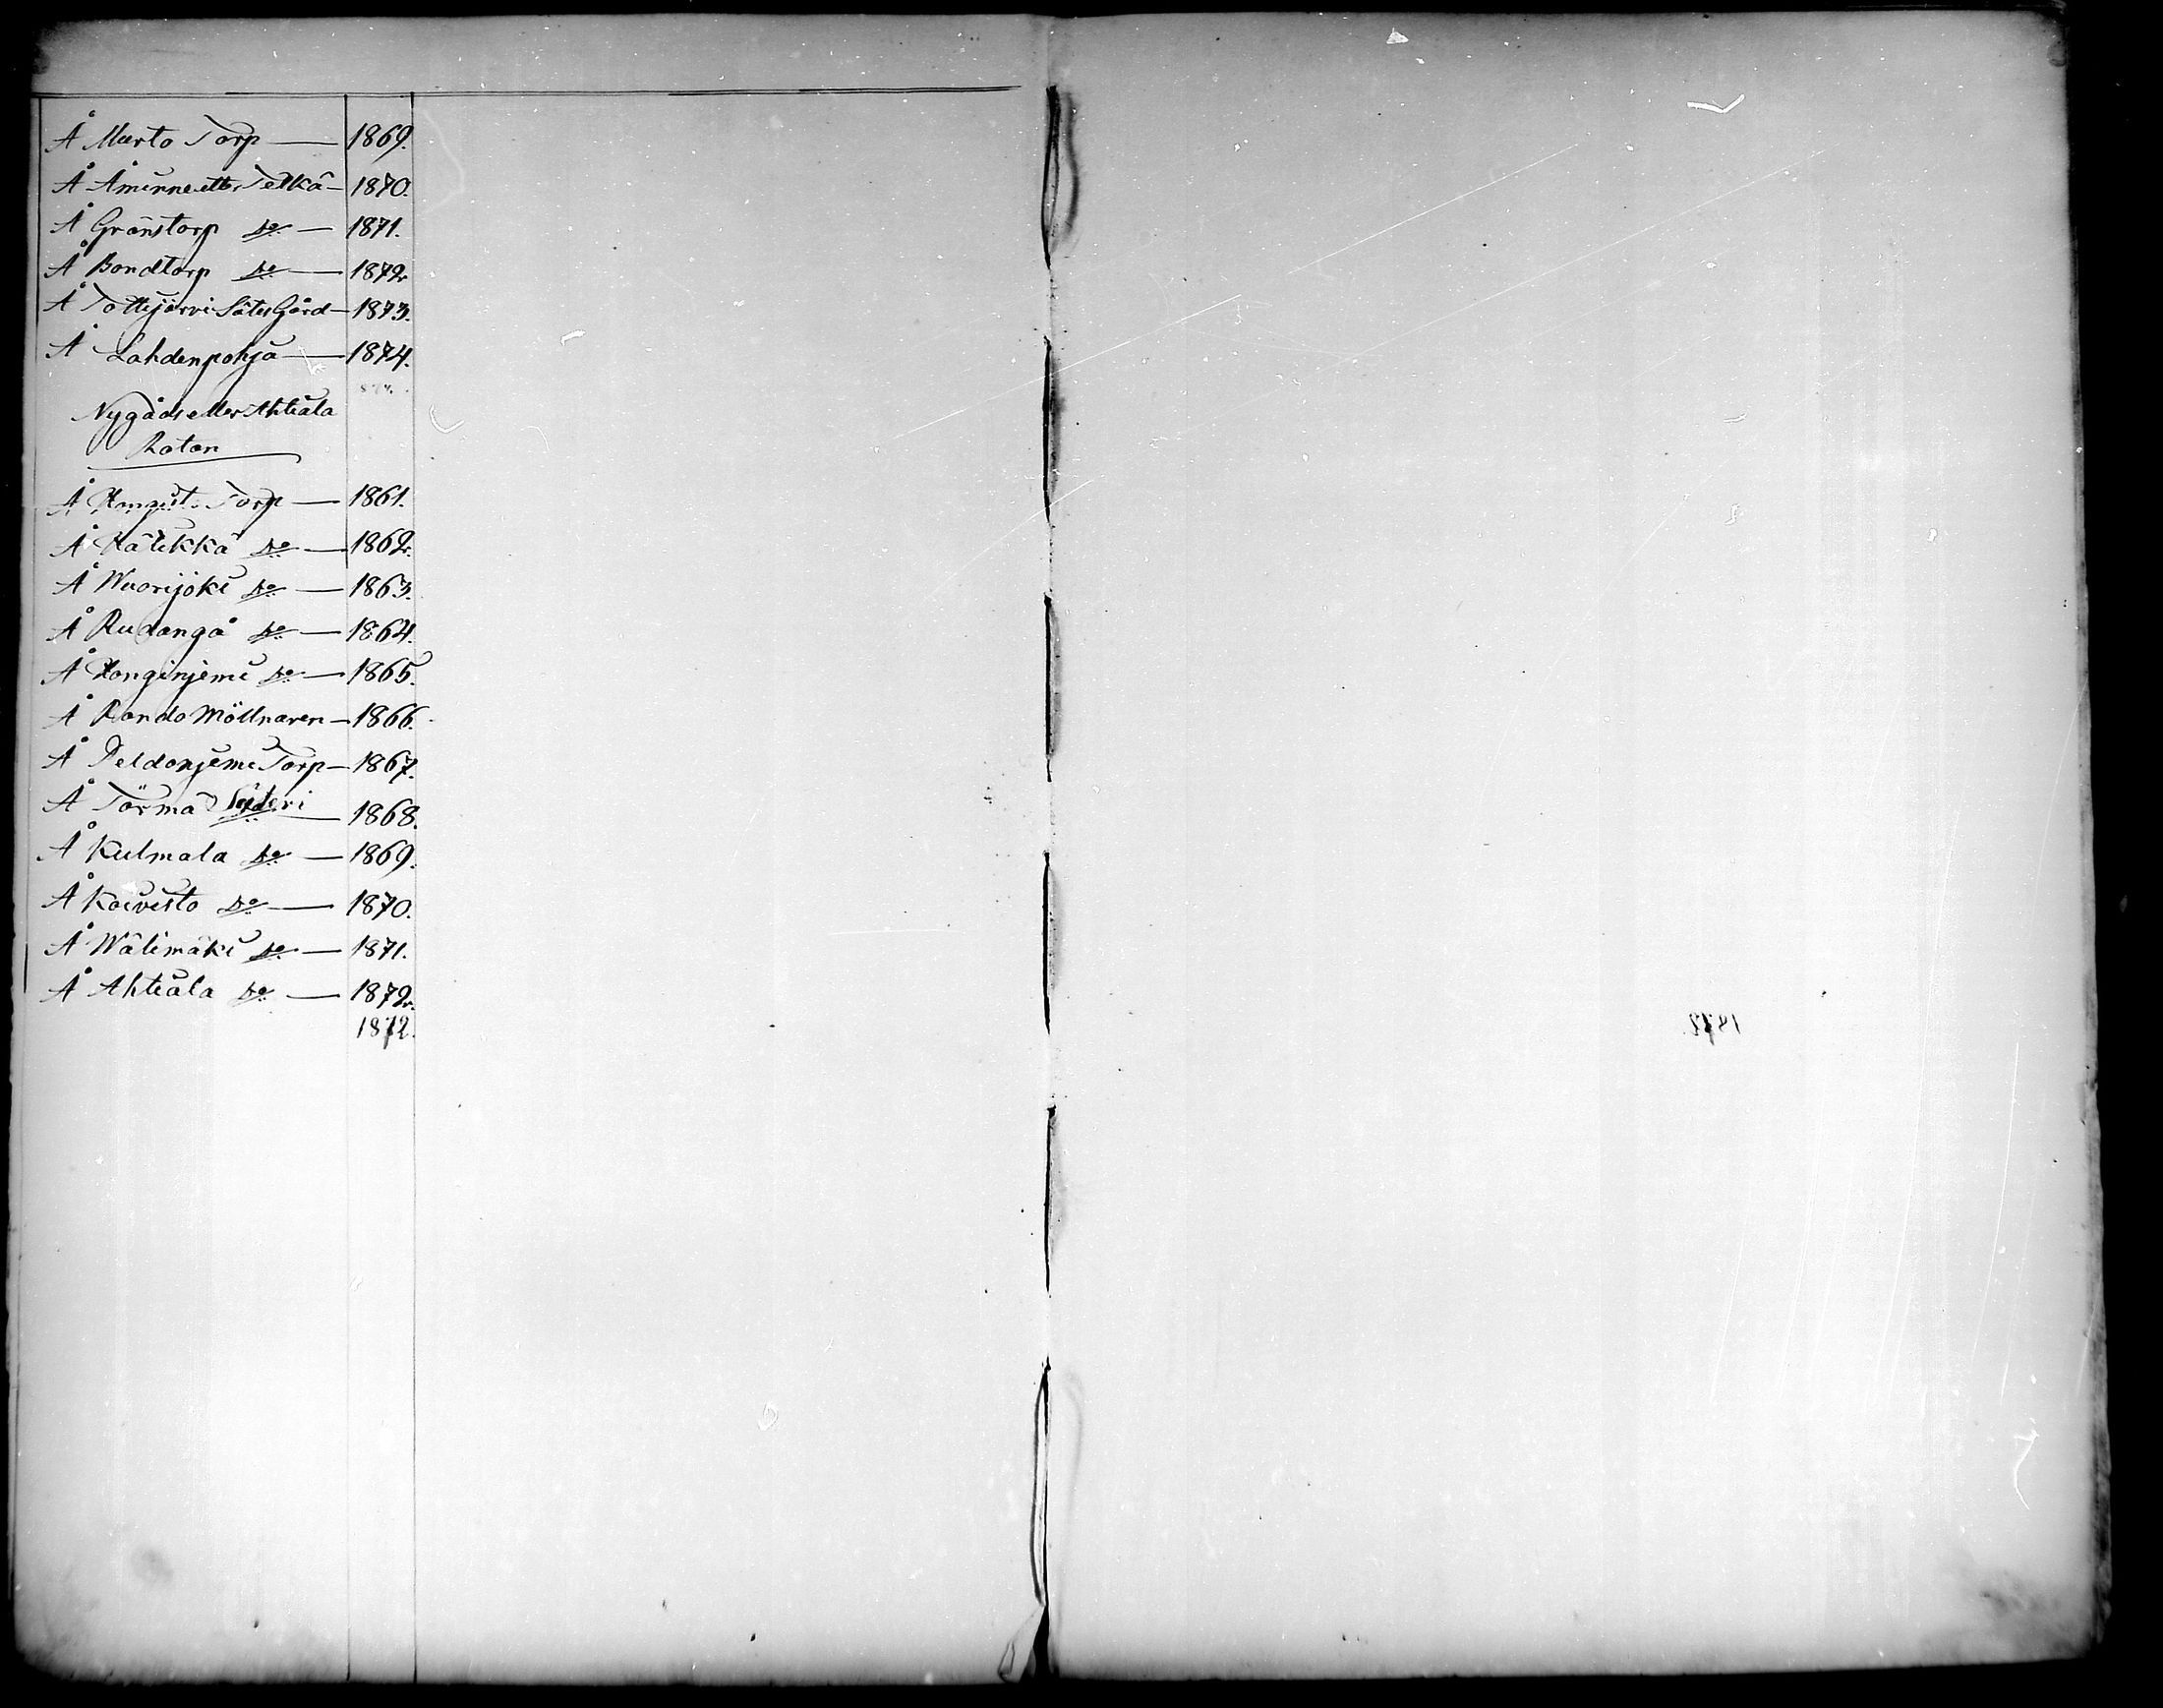 Å Murto Torp — 1869.
Å Åminne ell. Telkä — 1870.
Å Gränstorp Do — 1871.
Å Bondtorp Do — 1872.
Å Tottijärvi Säteri Gård — 1873.
Å Lahdenpohja — 1874.
Nygåds eller Ahtiala
Rotan
Å Hongist. Torp — 1861.
Å Hälikkä Do — 1862.
Å Wuorijoki Do — 1863.
Å Rudangå Do — 1864.
Å Honginjemi Do — 1865.
Å Rando Möllnaren — 1866.
Å Peldonjemi Torp — 1867.
Å Törmä Säteri 1868.
Å Kulmala Do — 1869.
Å Koivisto Do — 1870.
Å Wälimäki Do — 1871.
Å Ahtiala Do — 1872.
1872.